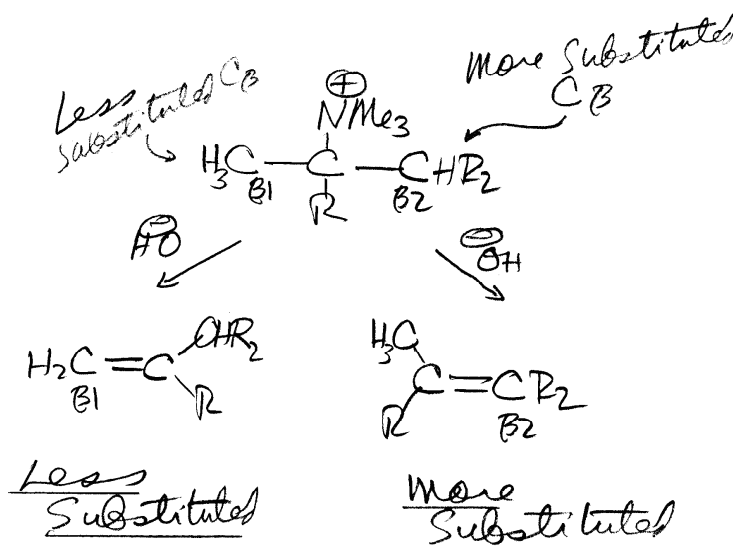 Less
Substituted Cβ
More Substituted
Cβ
⊕
NMe3
H3C—C—CHR2
β1
R
β2
HO⊖
⊖OH
H2C=C
CHR2
β1
R
H3C
C=CR2
R
β2
Less
Substituted
More
Substituted